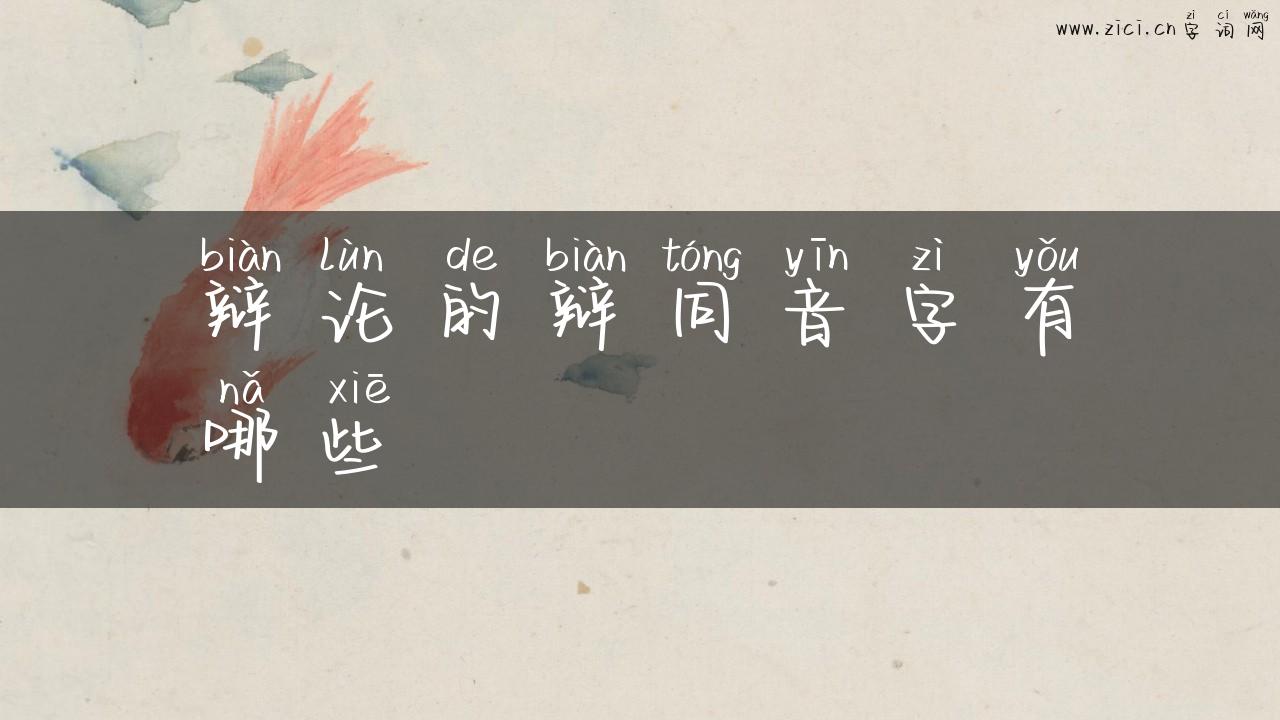 zì cí wǎng
www.zici.cn 字 词 网
biàn lùn de biàn tóng yīn zì yǒu
辩 论 的 辩 同 音 字 有
nǎ xiē
哪 些